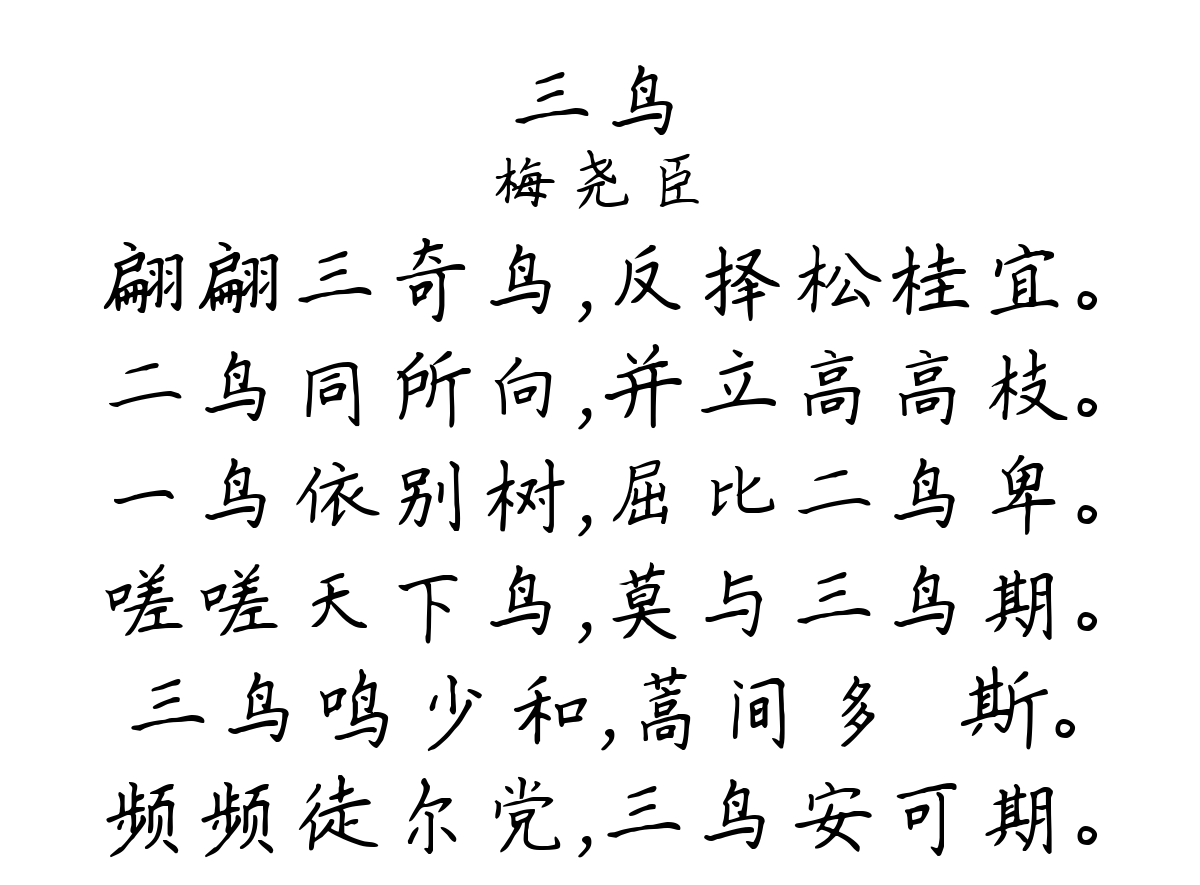 三鸟
梅尧臣
翩翩三奇鸟,反择松桂宜。
二鸟同所向,并立高高枝。
一鸟依别树,屈比二鸟卑。
嗟嗟天下鸟,莫与三鸟期。
三鸟鸣少和,蒿间多 斯。
频频徒尔党,三鸟安可期。